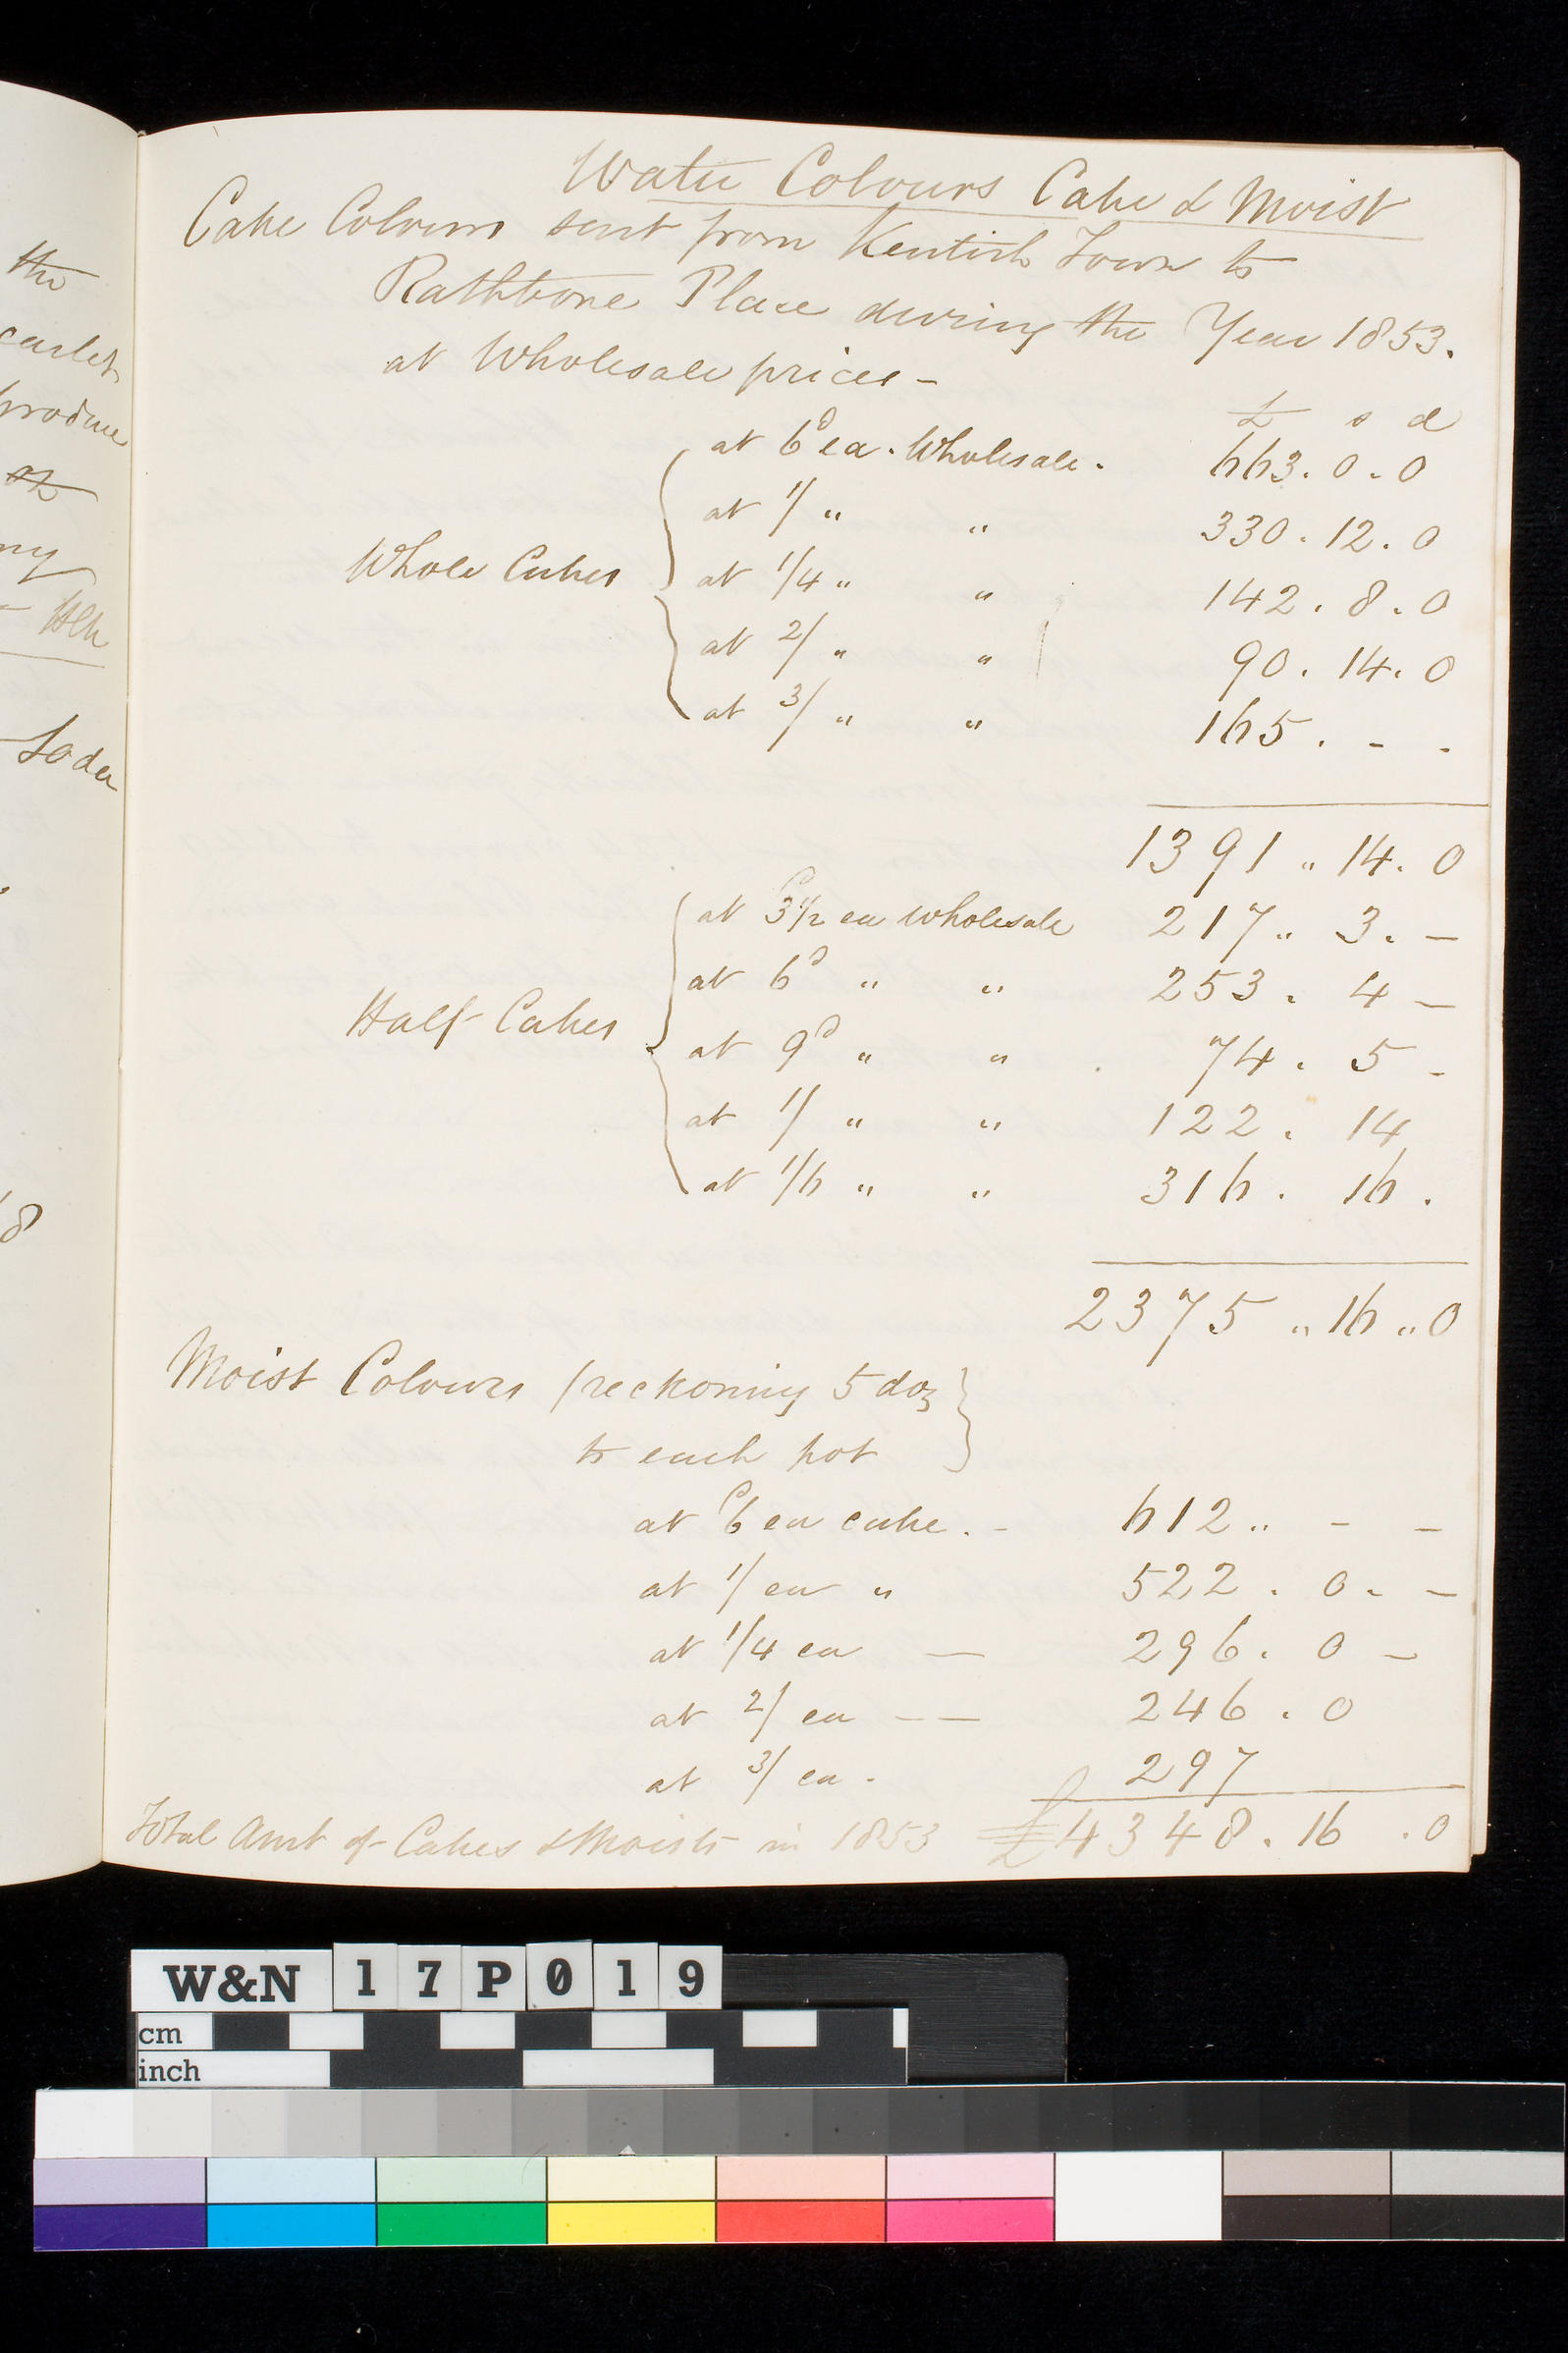 the
carlet
produce
ny
Soda
8
Water Colours Cake & Moist
Cake Colours sent from Kentish Town to
Rathbone Place during the Year 1853.
at Wholesale prices -
£ s d
at 6d ea. Wholesale. 663. 0. 0
at 1/ " " 330. 12. 0
Whole Cakes at 1/4 " " 142. 8. 0
at 2/ " " 90. 14. 0
at 3/ " " 165. - -
1391 " 14. 0
at 3½d ea wholesale 217 " 3. -
at 6d " " 253. 4 -
Half Cakes at 9d " " 74. 5 -
at 1/ " " 122. 14
at 1/6 " " 316. 16.
2375 " 16 " 0
Moist Colours (reckoning 5 doz
to each pot
at 6d ea cake. - 612 " - -
at 1/ ea " 522. 0. -
at 1/4 ea — 296. 0 -
at 2/ ea — — 246. 0
at 3/ ea. 297
Total Amt of Cakes & Moists in 1853 £4348. 16. 0
W&N 17P019
cm
inch